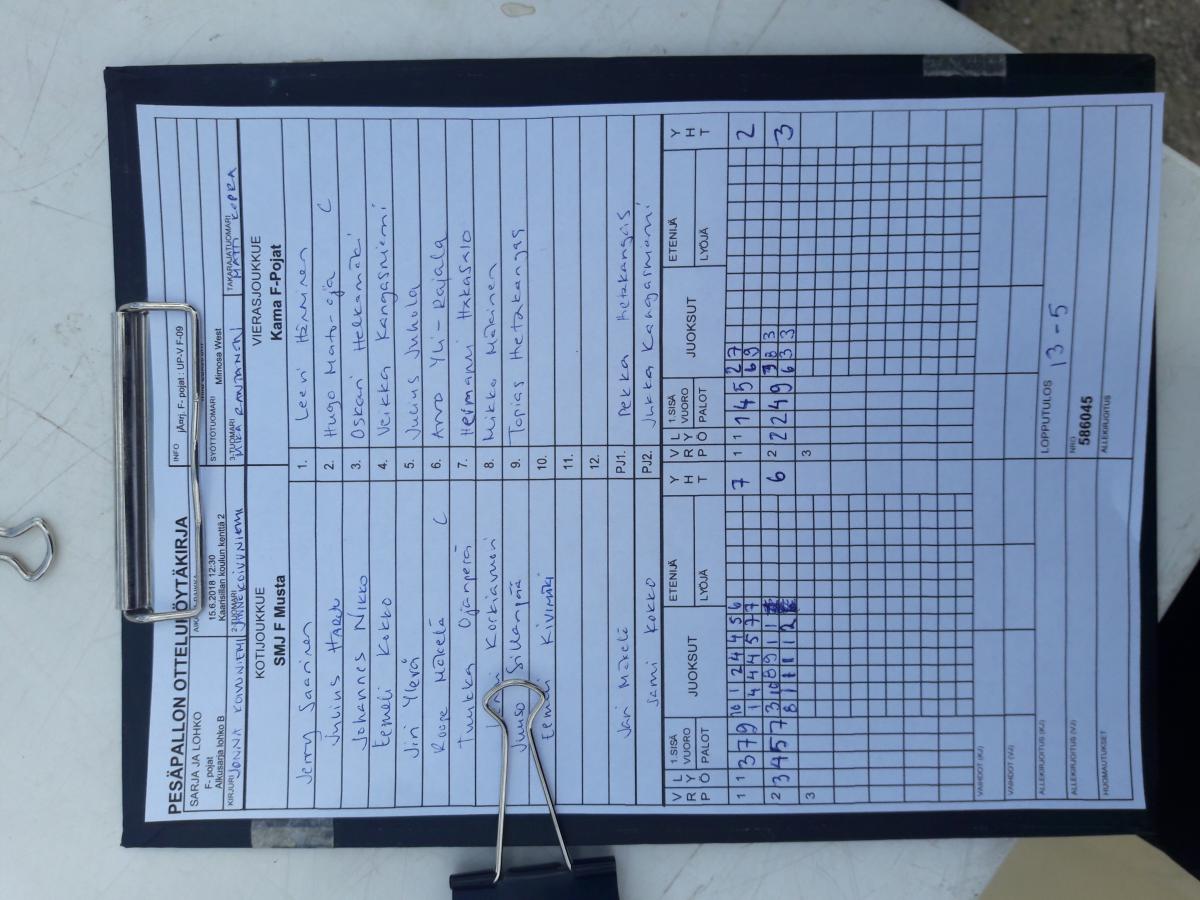 PESÄPALLON OTTELUPÖYTÄKIRJA
SARJA JA LOHKO
F- pojat
Alkusarja lohko B
15.6.2018 12:30
Kaarisillan koulun kenttä 2
INFO
jÄrj. F- pojat : UP-V F-09
SYÖTTÖTUOMARI
Mimosa West
KIRJURI JONNA KOIVUNIEMI
2-TUOMARI JANNE KOIVUNIEMI
3-TUOMARI MIKA RAUTANEN
TAKARAJATUOMARI MATTI KOPRA
KOTIJOUKKUE
SMJ F Musta
VIERASJOUKKUE
Kama F-Pojat
Jerry Saarinen 1. Leevi Hänninen
Julius 2. Hugo Mato-oja C
Johannes Nikko 3. Oskari Helkamäki
Eemeli Kokko 4. Veikka Kangasniemi
Jiri Ylerä 5. Julius Juhola
Roope Mäkelä C 6. Arvo Yli-Rajala
Tuukka Ojanperä 7. Hermanni Hakasalo
Korkiavuori 8. Mikko Mäkinen
Juuso Sillanpää 9. Topias Hietakangas
Eemeli Kivimäki 10.
11.
12.
Jari Mäkelä PJ1. Pekka Hietakangas
Jami Kokko PJ2. Jukka Kangasniemi
V R P L Y Ö 1.SISÄ VUORO PALOT JUOKSUT ETENIJÄ LYÖJÄ Y H T V R P L Y Ö 1.SISÄ VUORO PALOT JUOKSUT ETENIJÄ LYÖJÄ Y H T
1 1 3 7 9 10 1 2 4 4 5 6 7 1 1 1 4 5 2 7 2
1 4 4 4 5 7 7 6 9
2 3 4 5 7 3 10 8 9 1 1 6 2 2 2 4 9 9 8 3 3
8 1 1 1 1 2 6 3 3
3 3
VAIHDOT (KJ)
VAIHDOT (VJ)
ALLEKIRJOITUS (KJ) LOPPUTULOS 13-5
ALLEKIRJOITUS (VJ) NRO 586045
HUOMAUTUKSET ALLEKIRJOITUS